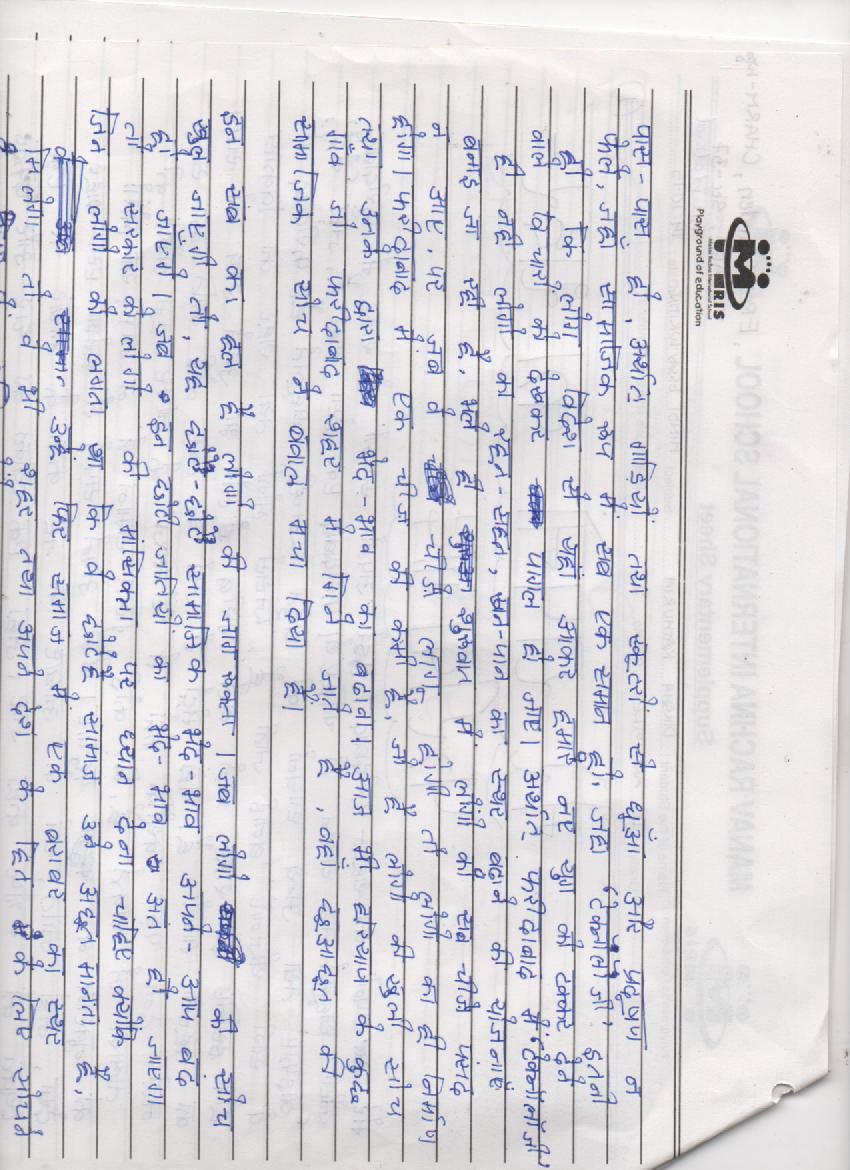 MRIS
Playground of education
पास-पास हो, अर्थात गाड़ियो तथा स्कूटरो से धूँआ और प्रदूषण न
फैले, जहाँ सामाजिक रूप से सब एक समान हो, जहा 'टेकनोलोजी' इतनी
हो कि लोग विदेश से यहाँ आकर हमारे नए युग को टक्कर देने
वाले विचारो को देखकर पागल हो जाए। अर्थात फरीदाबाद में 'टेकनोलोजी'
ही नही लोगो का रहन-सहन, खान-पान का स्थर बढाने की योजनाएं
बनाई जा रही है, भले ही शुरूवात में लोगो को सब चीजे पसंद
न आए, पर जब वे चीजे लागू होंगी तो लोगो का ही निर्माण
होगा। फरीदाबाद में एक चीज की कमी है, जो है लोगो की खुली सोच
तथा उनके द्वारा भेद-भाव का बढावा। आज भी हरियाणा के कुछ
गाव जो फरीदाबाद शहर में गिने जाते है, वहां छूआछूत की
सामाजिक सोच ने बेवाल मचा दिया है।
इन सब का हल है लोगो की जागरूकता। जब लोगो की सोच
खुल जाएगी तो, यह छोटे-छोटे सामाजिक भेद-भाव अपने-आप बंद
हो जाएगे। जब इन छोटी जातियो का भेद-भाव अंत हो जाएगा
तो सरकार को लोगो की मांसिकता पर ध्यान देना चाहिए क्योंकि
जिन लोगो को लगता था कि वे छोटे है समाज उन्हे अछूत मानता है,
उन्हे फिर समाज में एक बराबर का स्थर
मिलेगा तो वे भी शहर तथा अपने देश के हित के लिए सोचने